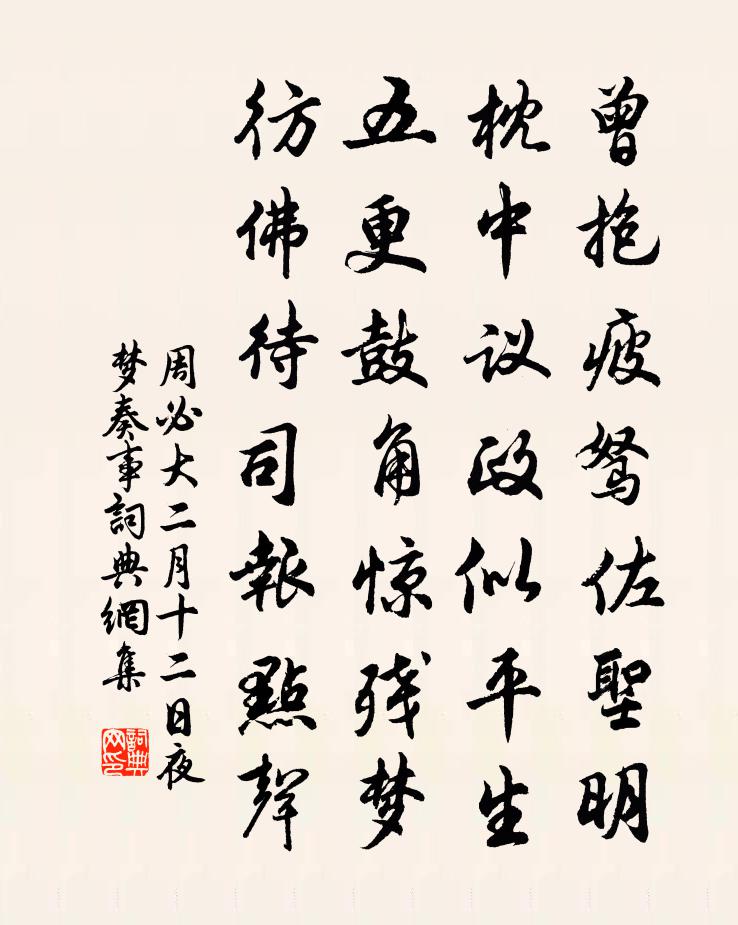 曾抱疲驽佐聖明
枕中议政似平生
五更鼓角惊残梦
彷佛待司報點聲
周必大二月十二日夜
梦奏事詞典網集
詞典网印